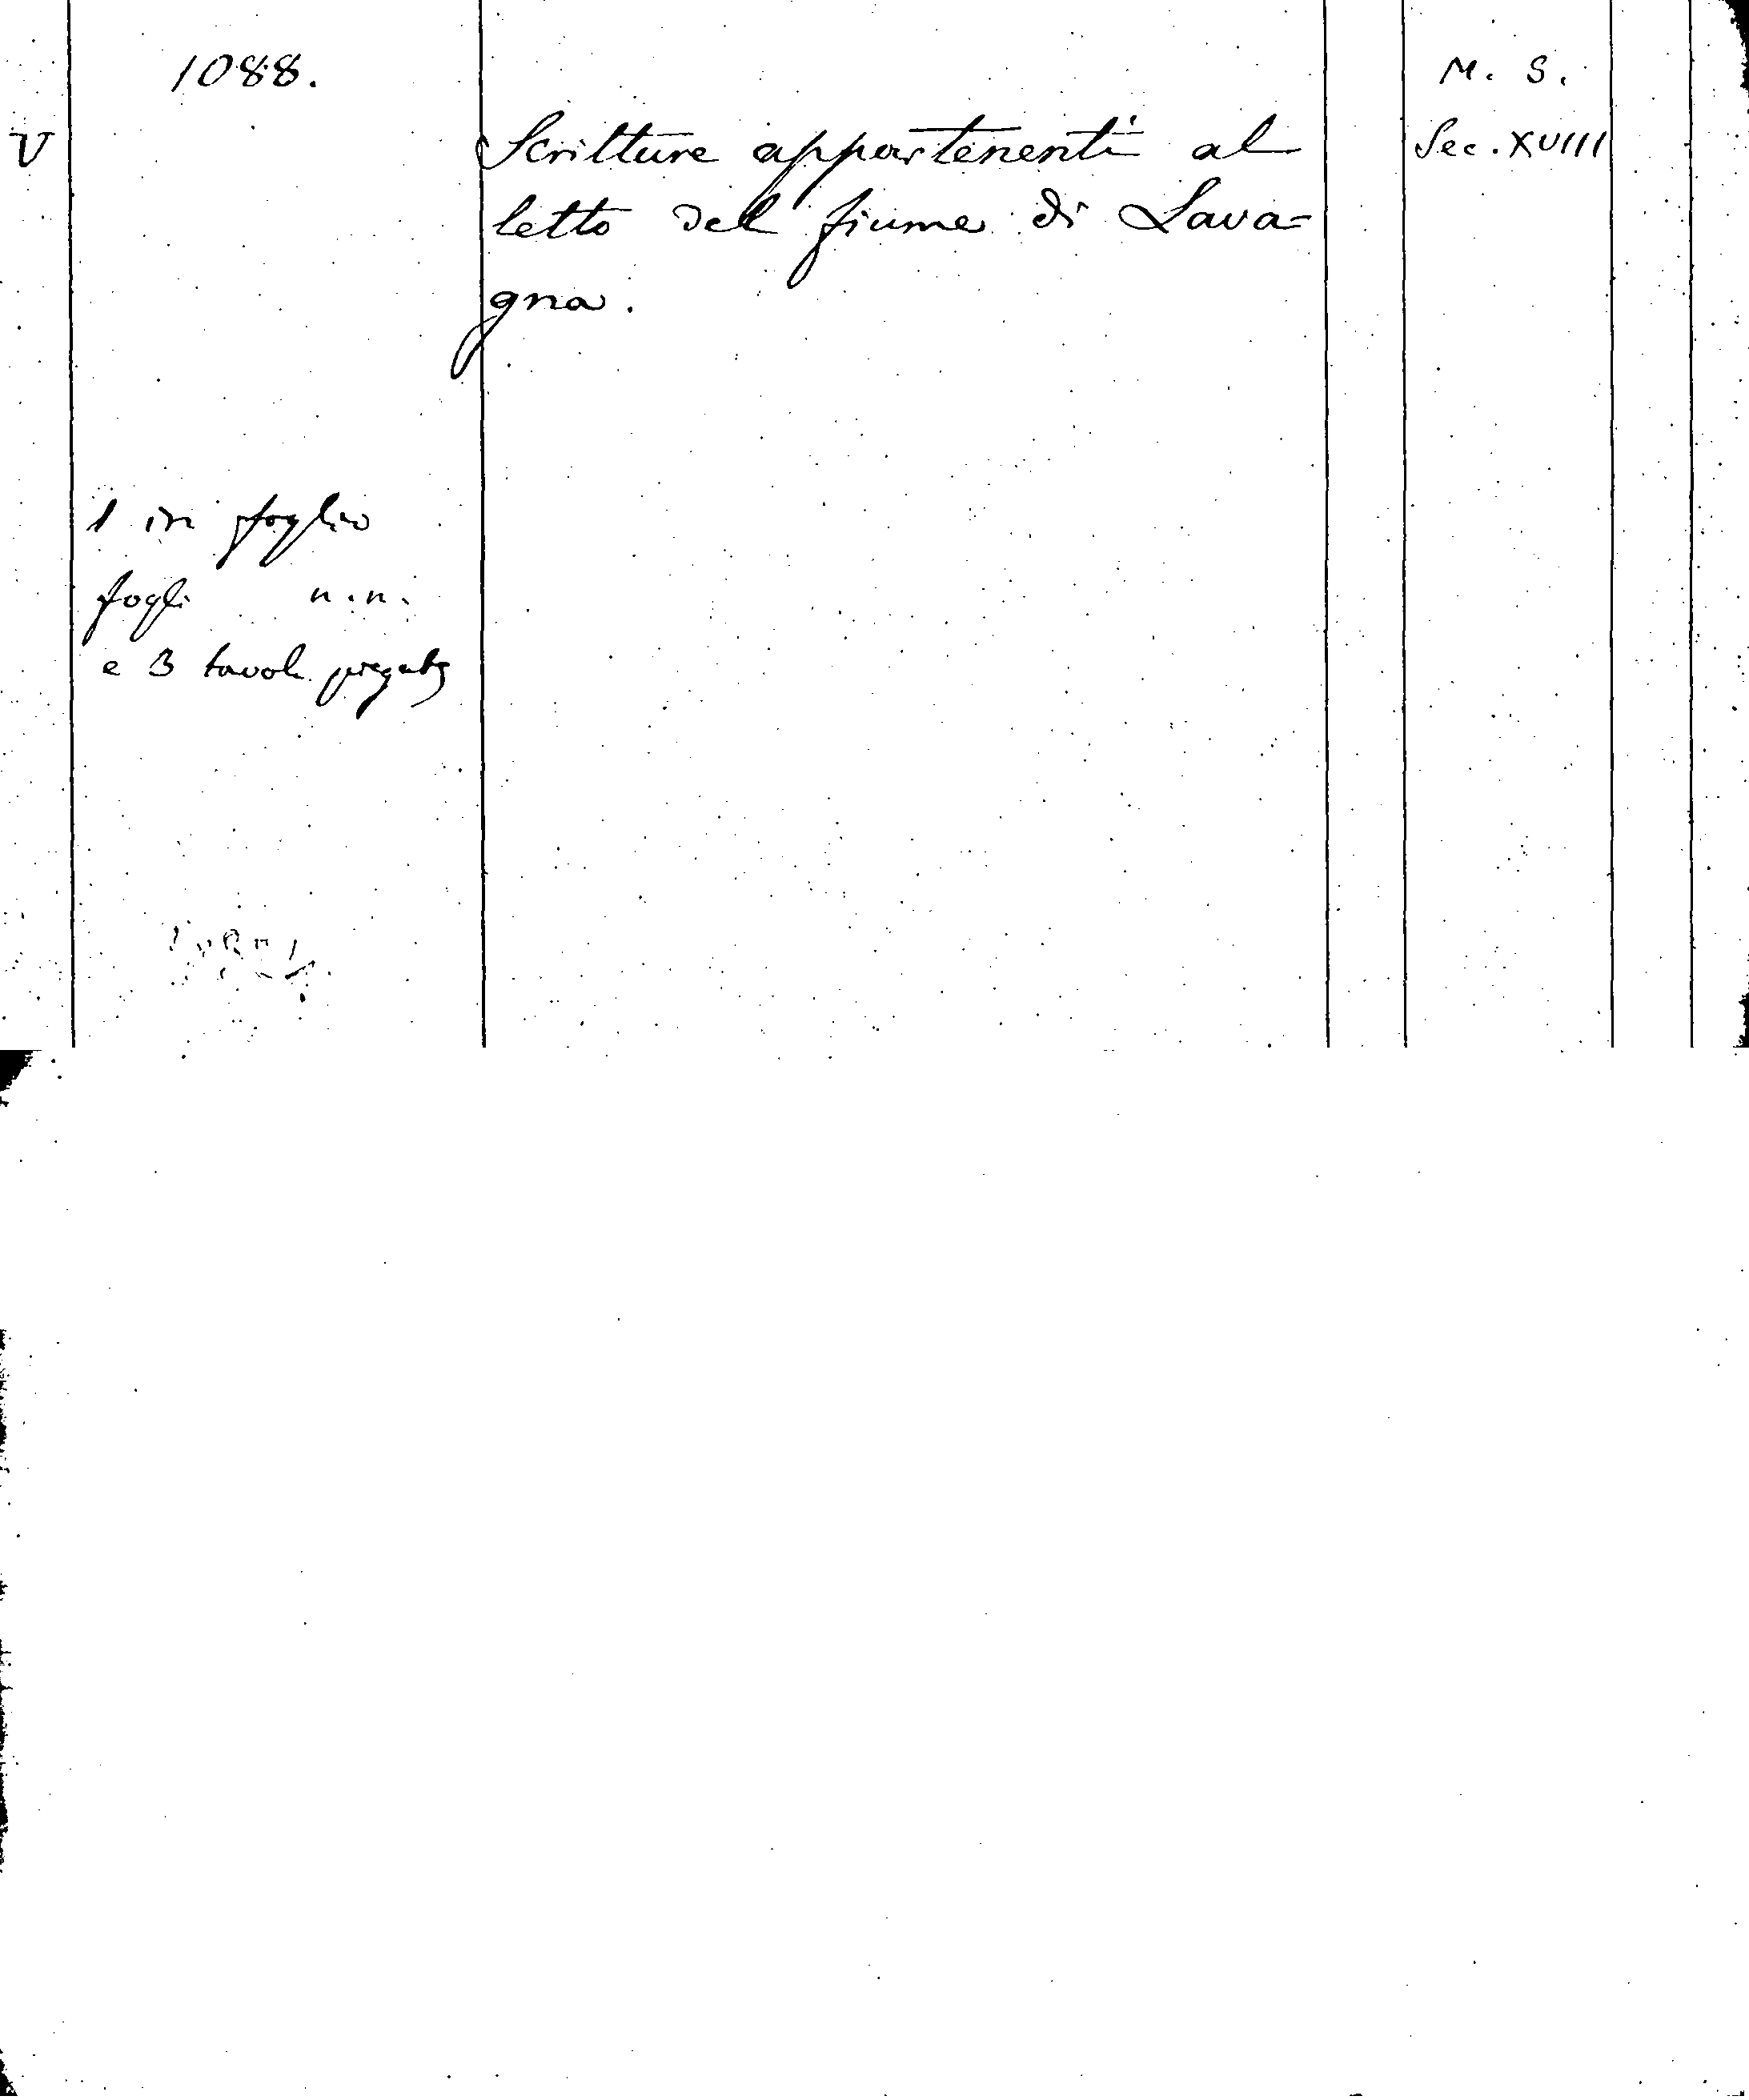 1088.
M. S.
V
Scritture appartenenti al
Sec. XVIII
letto del fiume di Lava=
gna.
1 in foglio
fogli n.n.
e 3 tavole piegate